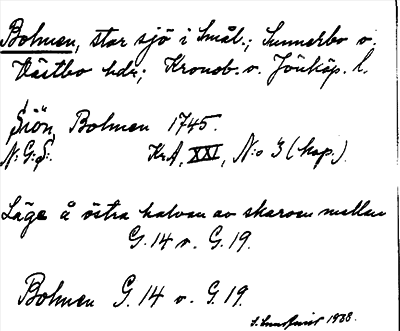 Bolmen, stor sjö i Smål.; Sunnerbo o.
Västbo hdr; Kronob. o. Jönköp. l.
Siön, Bolmen 1745.
N:G:S: KrA, XXI, N:o 3 (kop.)
Läge å östra halvan av skarven mellan
G. 14 o. G. 19.
Bolmen G. 14 o. G. 19.
1938.